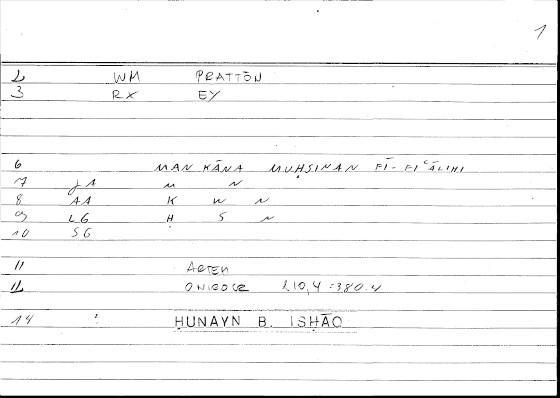 1
2 WM PRATTŌN
3 RX EY
6 MAN KĀNA MUḤSINAN FĪ-FIʿĀLIHI
7 JA M N
8 AA K W N
9 LG Ḥ S N
10 SG
11 ARTEN
12 ONIROCR 210,4 = 380.4
14 : ḤUNAYN B. ISḤĀQ